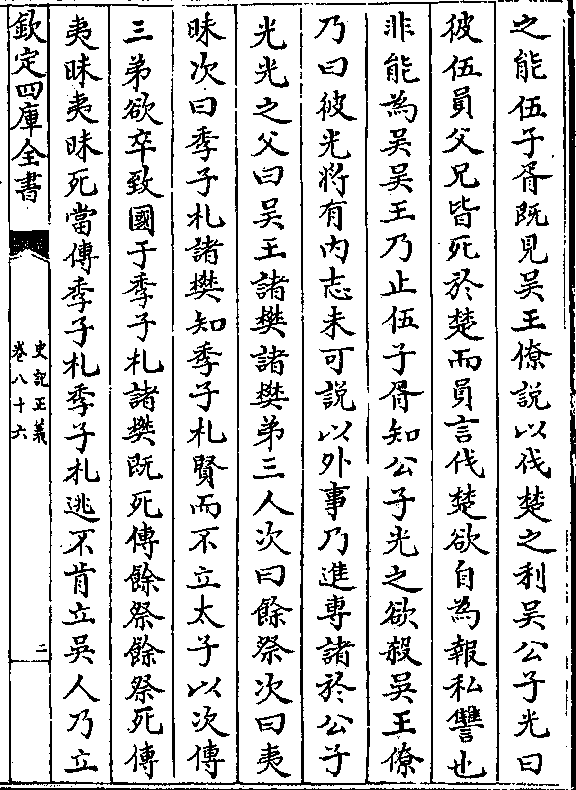 之能伍子胥既見吳王僚說以伐楚之利吳公子光曰
彼伍員父兄皆死於楚而員言伐楚欲自為報私讐也
非能為吳吳王乃止伍子胥知公子光之欲殺吳王僚
乃曰彼光將有內志未可說以外事乃進專諸於公子
光光之父曰吳王諸樊諸樊弟三人次曰餘祭次曰夷
昧次曰季子札諸樊知季子札賢而不立太子以次傳
三弟欲卒致國于季子札諸樊既死傳餘祭餘祭死傳
夷昧夷昧死當傳季子札季子札逃不肯立吳人乃立
欽定四庫全書
史記正義
卷八十六
二